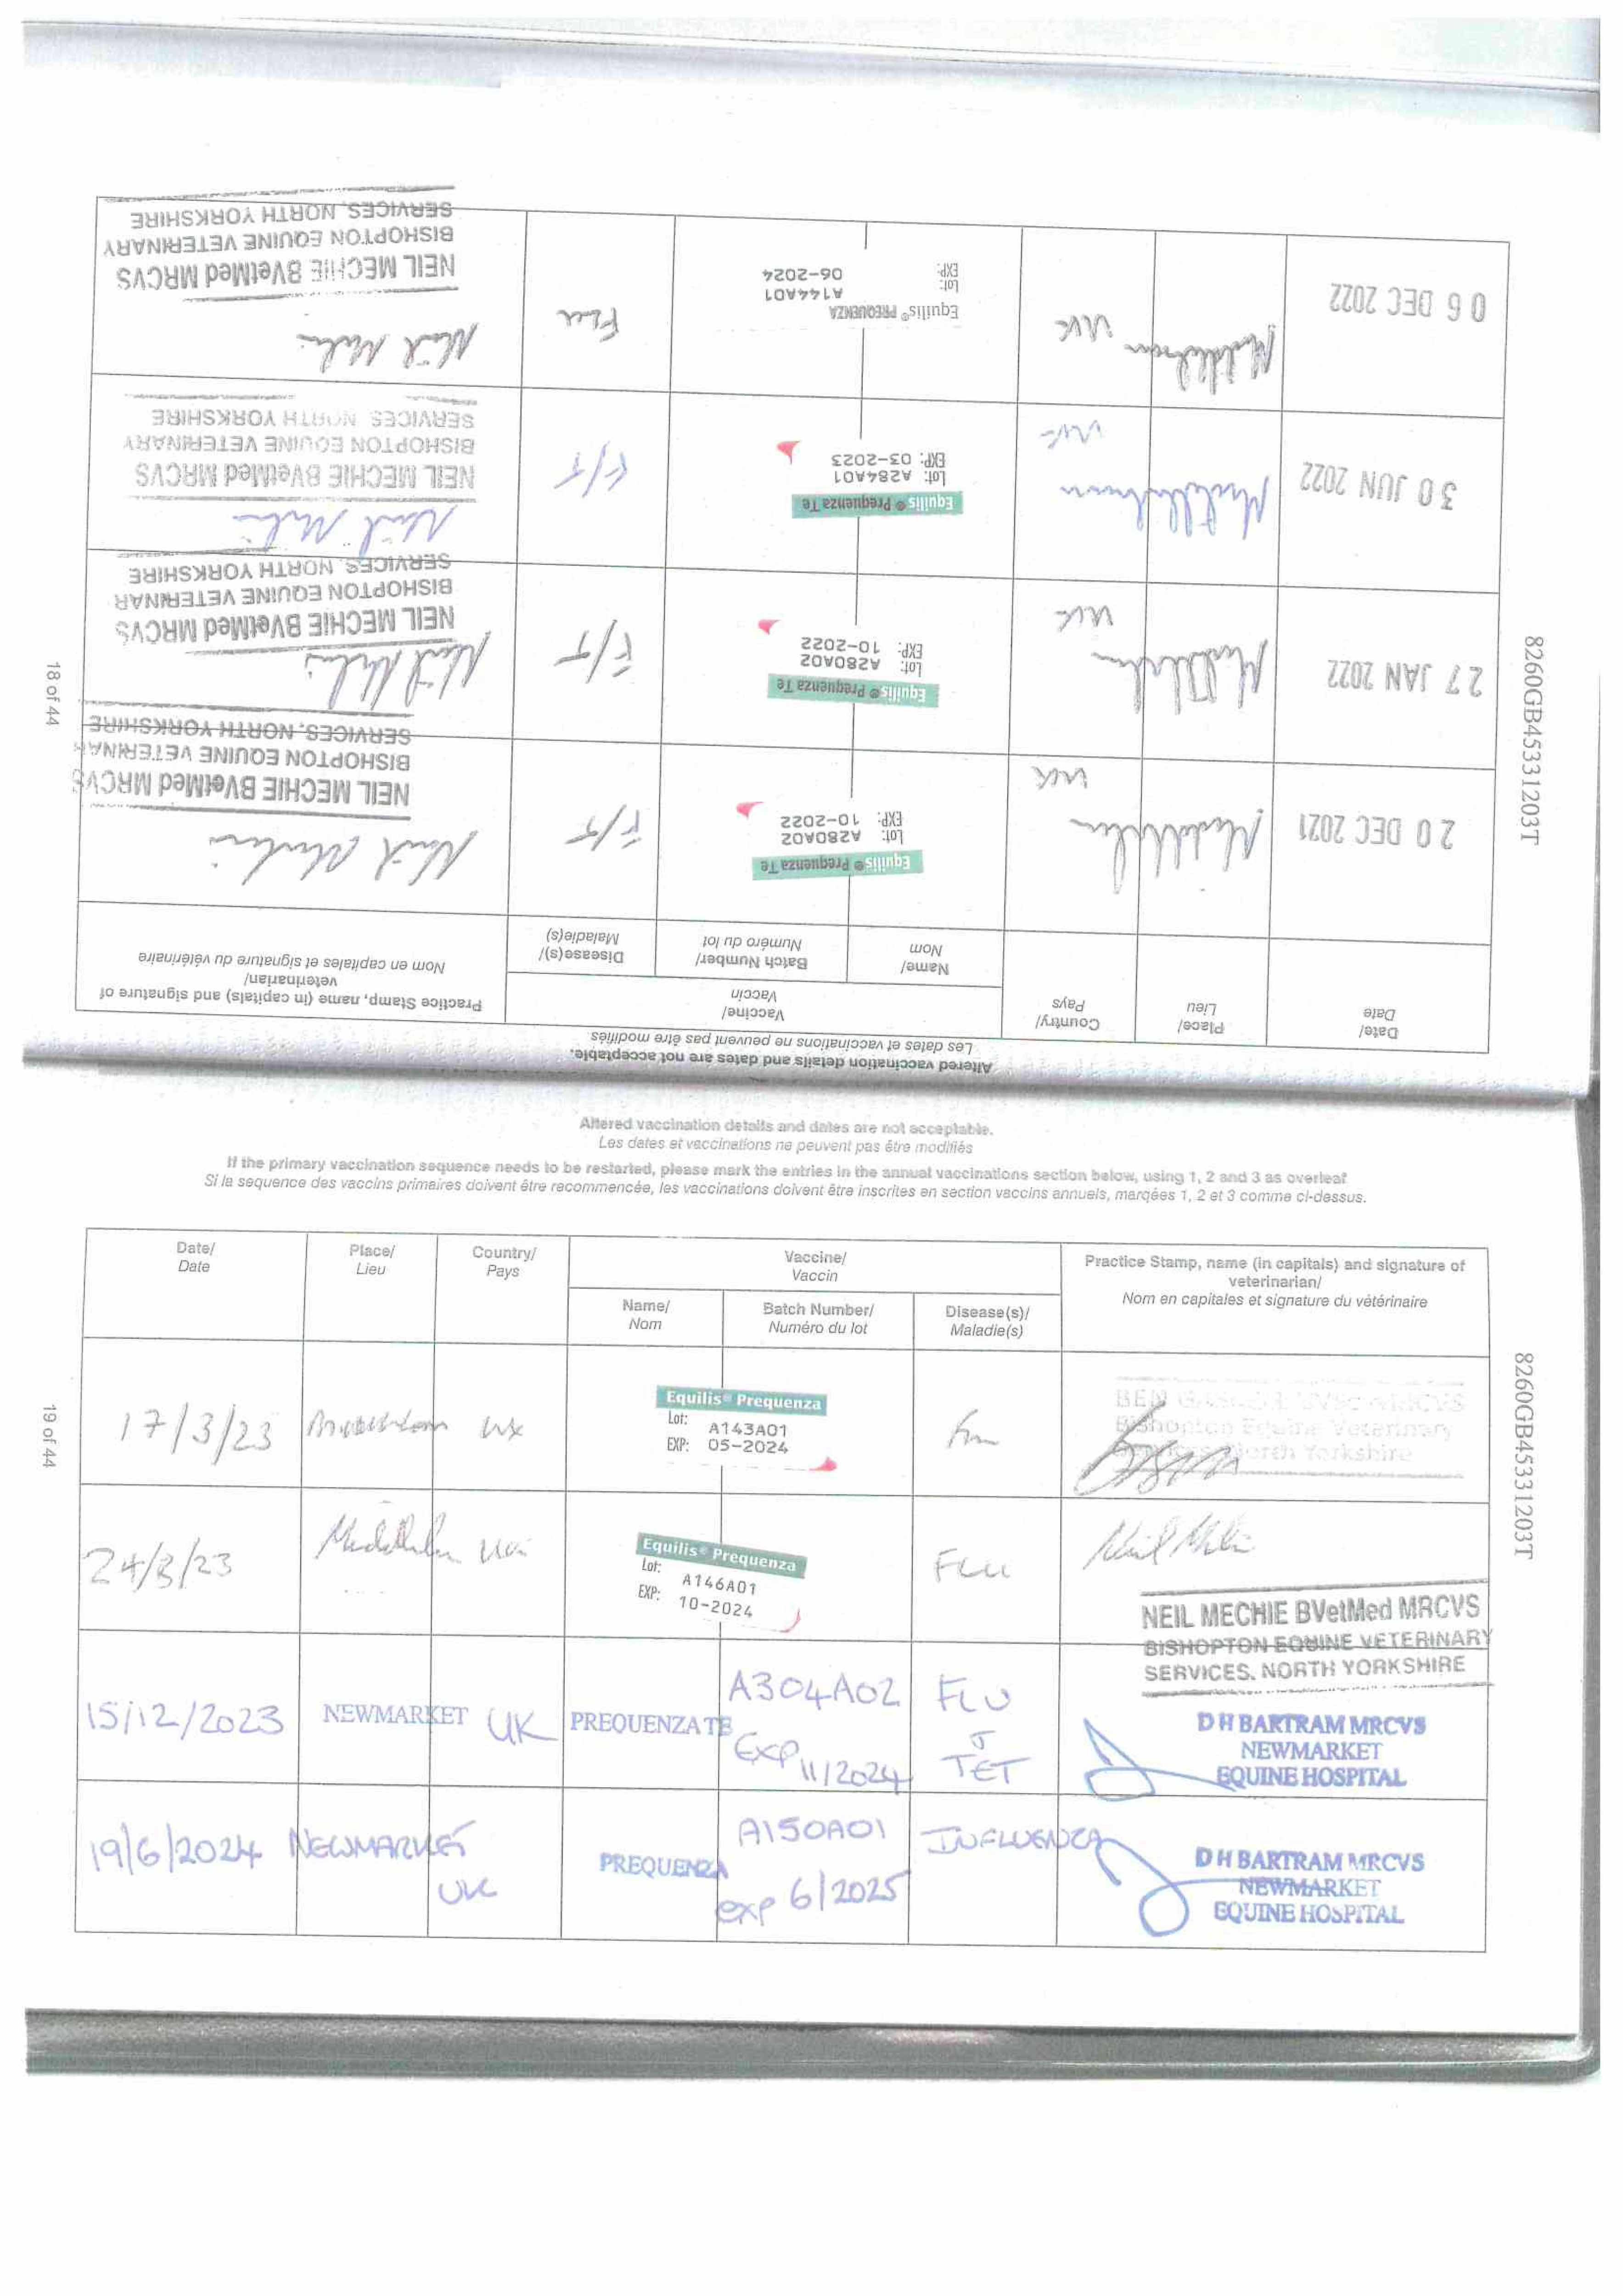 Altered vaccination details and dates are not acceptable.
Les dates et vaccinations ne peuvent pas être modifiés
Date/ Date
Place/ Lieu
Country/ Pays
Vaccine/ Vaccin
Name/ Nom
Batch Number/ Numéro du lot
Disease(s)/ Maladie(s)
Practice Stamp, name (in capitals) and signature of
veterinarian/
Nom en capitales et signature du vétérinaire
20 DEC 2021
UK
Equilis® Prequenza Te
Lot: A280A02
EXP: 10-2022
F/T
NEIL MECHIE BVetMed MRCVS
BISHOPTON EQUINE VETERINAR
SERVICES. NORTH YORKSHIRE
27 JAN 2022
UK
Equilis® Prequenza Te
Lot: A280A02
EXP: 10-2022
F/T
NEIL MECHIE BVetMed MRCVS
BISHOPTON EQUINE VETERINAR
SERVICES. NORTH YORKSHIRE
30 JUN 2022
UK
Equilis® Prequenza Te
Lot: A284A01
EXP: 03-2023
F/T
NEIL MECHIE BVetMed MRCVS
BISHOPTON EQUINE VETERINARY
SERVICES. NORTH YORKSHIRE
06 DEC 2022
UK
Equilis® PREQUENZA
Lot: A144A01
EXP: 06-2024
Flu
NEIL MECHIE BVetMed MRCVS
BISHOPTON EQUINE VETERINARY
SERVICES. NORTH YORKSHIRE
18 of 44
8260GB45331203T
Altered vaccination details and dates are not acceptable.
Les dates et vaccinations ne peuvent pas être modifiés
If the primary vaccination sequence needs to be restarted, please mark the entries in the annual vaccinations section below, using 1, 2 and 3 as overleaf
Si la sequence des vaccins primaires doivent être recommencée, les vaccinations doivent être inscrites en section vaccins annuels, marqées 1, 2 et 3 comme ci-dessus.
Date/ Date
Place/ Lieu
Country/ Pays
Vaccine/ Vaccin
Name/ Nom
Batch Number/ Numéro du lot
Disease(s)/ Maladie(s)
Practice Stamp, name (in capitals) and signature of
veterinarian/
Nom en capitales et signature du vétérinaire
17/3/23
UK
Equilis® Prequenza
Lot: A143A01
EXP: 05-2024
Bishopton Equine Veterinary
North Yorkshire
24/3/23
Equilis® Prequenza
Lot: A146A01
EXP: 10-2024
FLU
NEIL MECHIE BVetMed MRCVS
BISHOPTON EQUINE VETERINARY
SERVICES. NORTH YORKSHIRE
15/12/2023
NEWMARKET
UK
PREQUENZA TE
A304A02
EXP 11/2024
FLU
TET
D H BARTRAM MRCVS
NEWMARKET
EQUINE HOSPITAL
19/6/2024
NEWMARKET
UK
PREQUENZA
A150A01
exp 6/2025
INFLUENZA
D H BARTRAM MRCVS
NEWMARKET
EQUINE HOSPITAL
19 of 44
8260GB45331203T